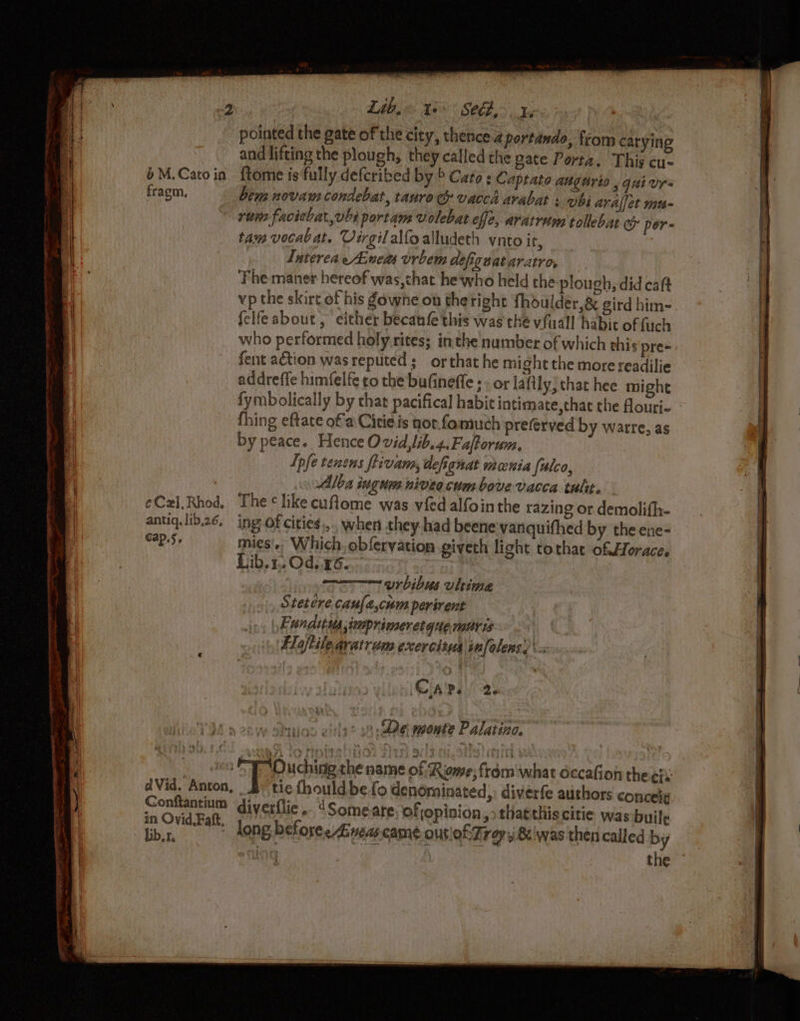 2 Lib. 1. Sect. 1.
pointed the gate of the city, thence a portando, from carying
and lifting the plough, they called the gate Porta. This cu-
b M. Cato in fragm.
ſtome is fully deſcribed by b Cato : Captato augurio, qui vr-
bem novam condebat, tauro & vacca arabat ; vbi araſſet mu-
rum faciebat, vbi portam volebat eſſe, aratrum tollebat & por-
tam vocabat. Virgil alſo alludeth vnto it,
Interea Æneas vrbem deſignat aratro,
The maner hereof was, that he who held the plough, did caſt
vp the skirt of his gowne on the right ſhoulder, & gird him-
ſelfe about, either becauſe this was the vſuall habit of ſuch
who performed holy rites; in the number of which this pre-
ſent action was reputed ; or that he might the more readilie
addreſſe himſelfe to the buſineſſe ; or laſtly, that hee might
ſymbolically by that pacifical habit intimate, that the flouri-
ſhing eſtate of a Citie is not ſo much preſerved by warre, as
by peace. Hence Ovid, lib. 4. Faſtorum.
Ipſe tenens ſtivam, deſignat mœnia ſulco,
Alba iugum niveo cum bove vacca tulit.
c Cæl. Rhod. antiq. lib. 26. cap. 5.
The c like cuſtome was vſed alſo in the razing or demoliſh-
ing of cities, when they had beene vanquiſhed by the ene-
mies. Which obſervation giveth light to that of Horace,
Lib. 1. Od. 16.
—— vrbibus vltimæ
Stetêre cauſæ, cum perirent
Funditus, imprimeretque muris
Hoſtile aratrum exercitus inſolens.
CAP. 2.
De monte Palatino.
TOuching the name of Rome, from what occaſion the ci-
tie ſhould be ſo denominated, diverſe authors conceit
d Vid. Anton. Conſtantium in Ovid. Faſt. lib. 1.
diverſlie. d Some are of opinion, that this citie was built
long before Æneas came out of Troy, & was then called by
the